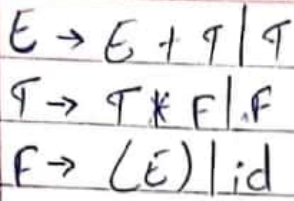 E → E + T | T
T → T * F | F
F → (E) | id